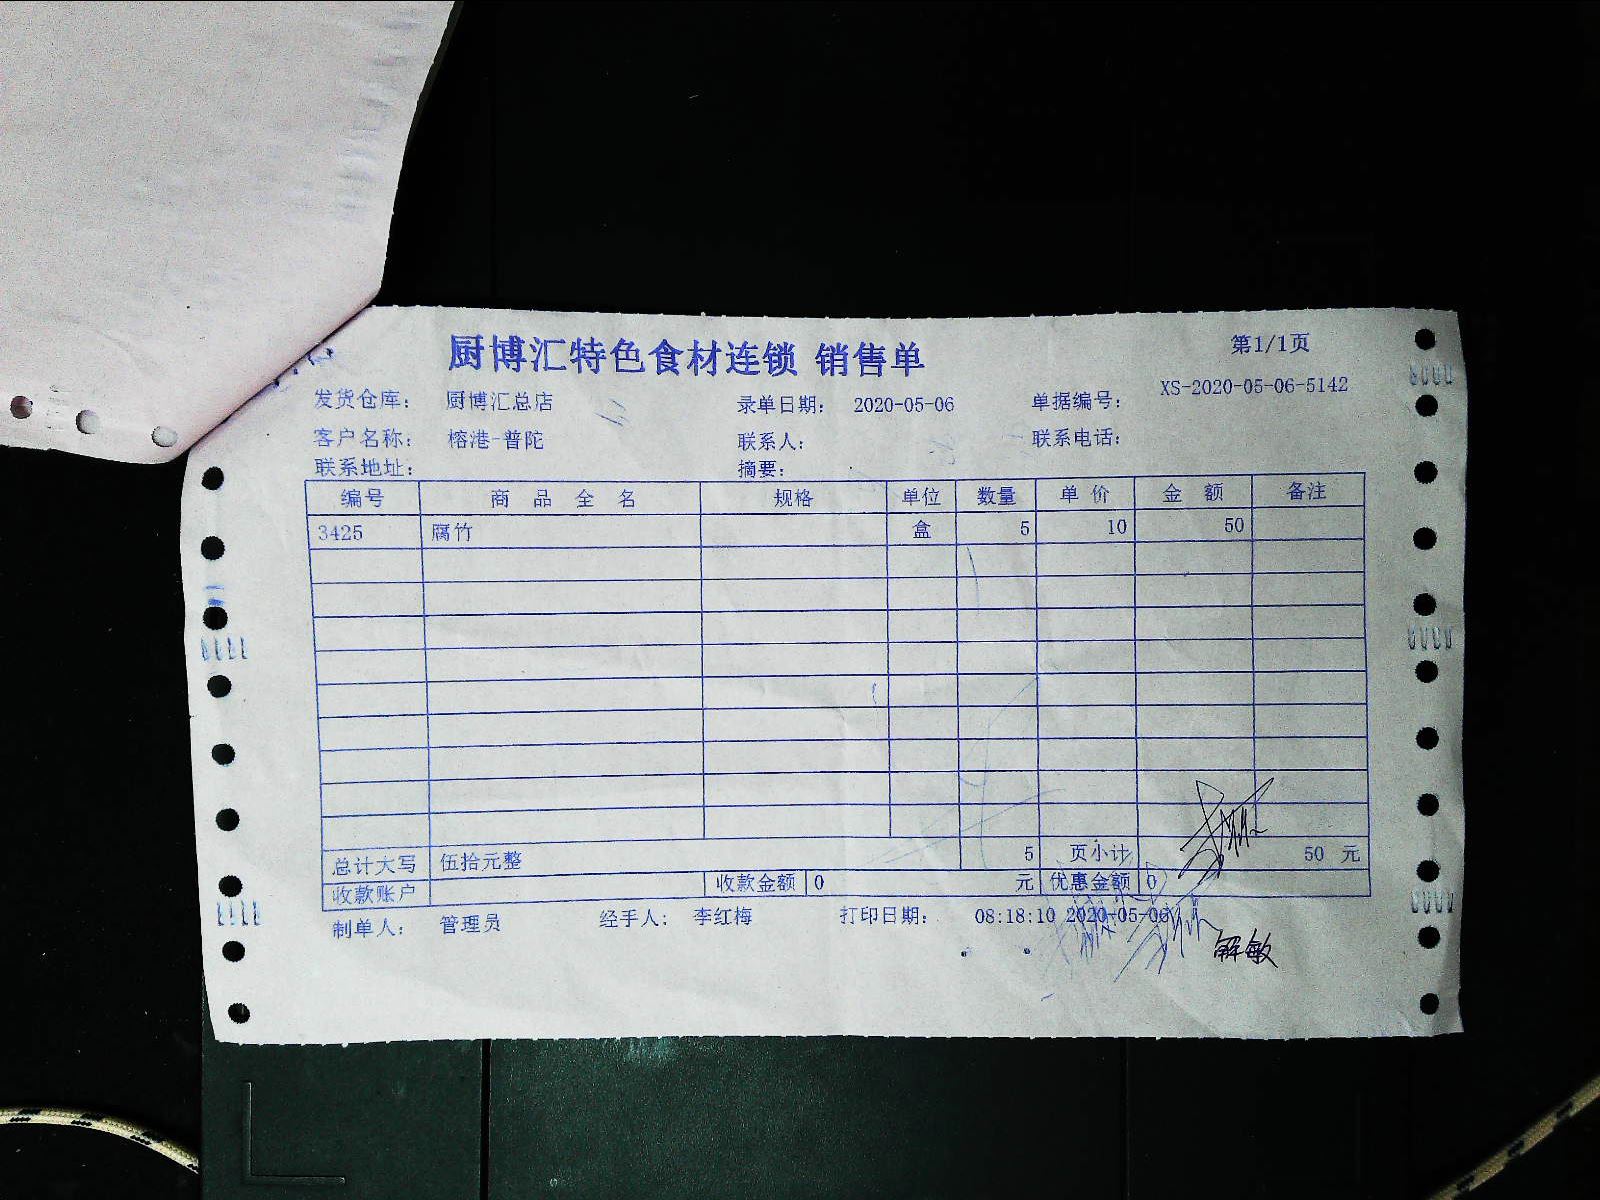 厨博汇特色食材连锁 销售单
第1/1页
发货仓库: 厨博汇总店 录单日期: 2020-05-06 单据编号: XS-2020-05-06-5142
客户名称: 榕港-普陀 联系人: 联系电话:
联系地址: 摘要:
编号 商品全名 规格 单位 数量 单价 金额 备注
3425 腐竹 盒 5 10 50
总计大写 伍拾元整 5 页小计 50 元
收款账户 收款金额 0 元 优惠金额 0
制单人: 管理员 经手人: 李红梅 打印日期: 08:18:10 2020-05-06
解敏